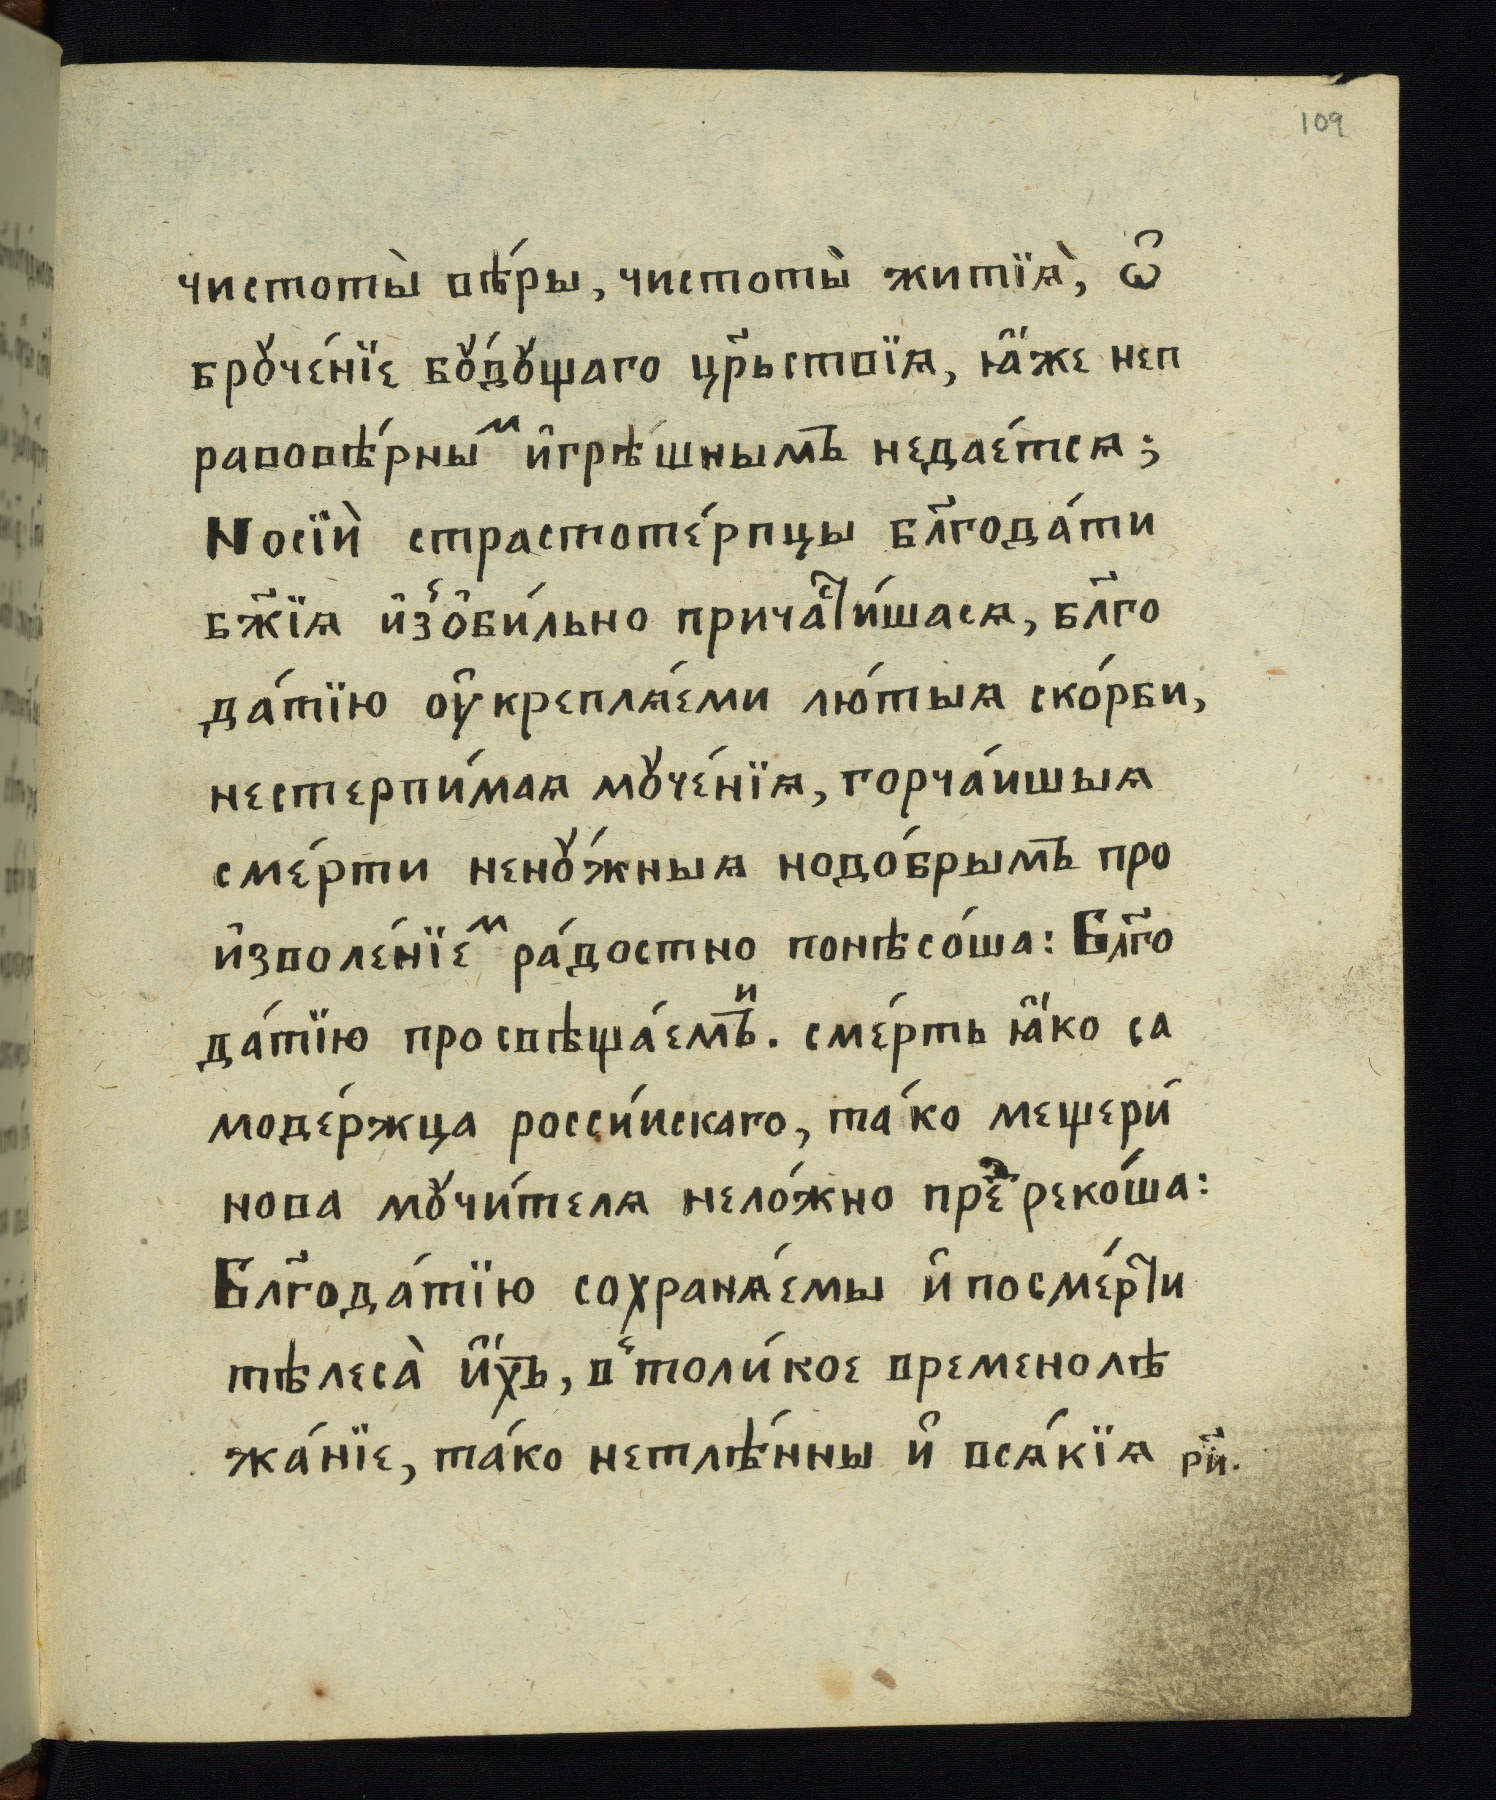 109
чистоты̀ вѣ́ры, чистоты̀ житїѧ̀, ѡ҆
брꙋче́нїе бꙋ́дꙋщаго цр҃ьствїѧ, ꙗ҆́же неп
равовѣ́рныⷨ и҆грѣ́шнымъ недае́тсѧ;
Носїѝ страстоте́рпцы бл҃года́ти
бж҃їѧ и҆зⸯѻ҆би́льно причаⷭ҇ти́шасѧ, бл҃го
да́тїю оу҆креплѧ́еми лю́тыѧ ско́рби,
нестерпи́маѧ мꙋче́нїѧ, горча́ишыѧ
сме́рти ненꙋ́жныѧ нодо́брымъ про
и҆зволе́нїеⷨ ра́достно понѣсо́ша: Бл҃го
да́тїю просвѣща́емъⷤи. сме́рть ꙗ҆́ко са
моде́ржца росси́искаго, та́ко мещери́
нова мꙋчи́телѧ нело́жно преⷣреко́ша:
Бл҃года́тїю сохранѧ́емы и҆ посме́рти
тѣлеса̀ и҆́хъ, вⸯтоли́кое временолѣ
жа́нїе, та́ко нетлѣ́нны и҆ всѧ́кїѧ
р҃и.